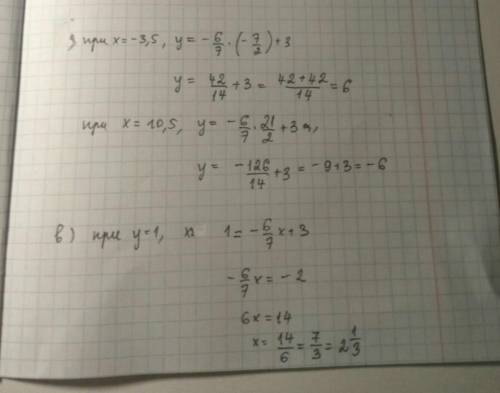 при x=-3,5, y= -6/7 · (-7/2)+3
y= 42/14 +3 = 42+42/14 = 6
при x=10,5, y= -6/7 · 21/2 +3
y= -126/14 +3 = -9+3 = -6
в) при y=1, 1= -6/7 x+3
-6/7 x = -2
6x=14
x= 14/6 = 7/3 = 2 1/3